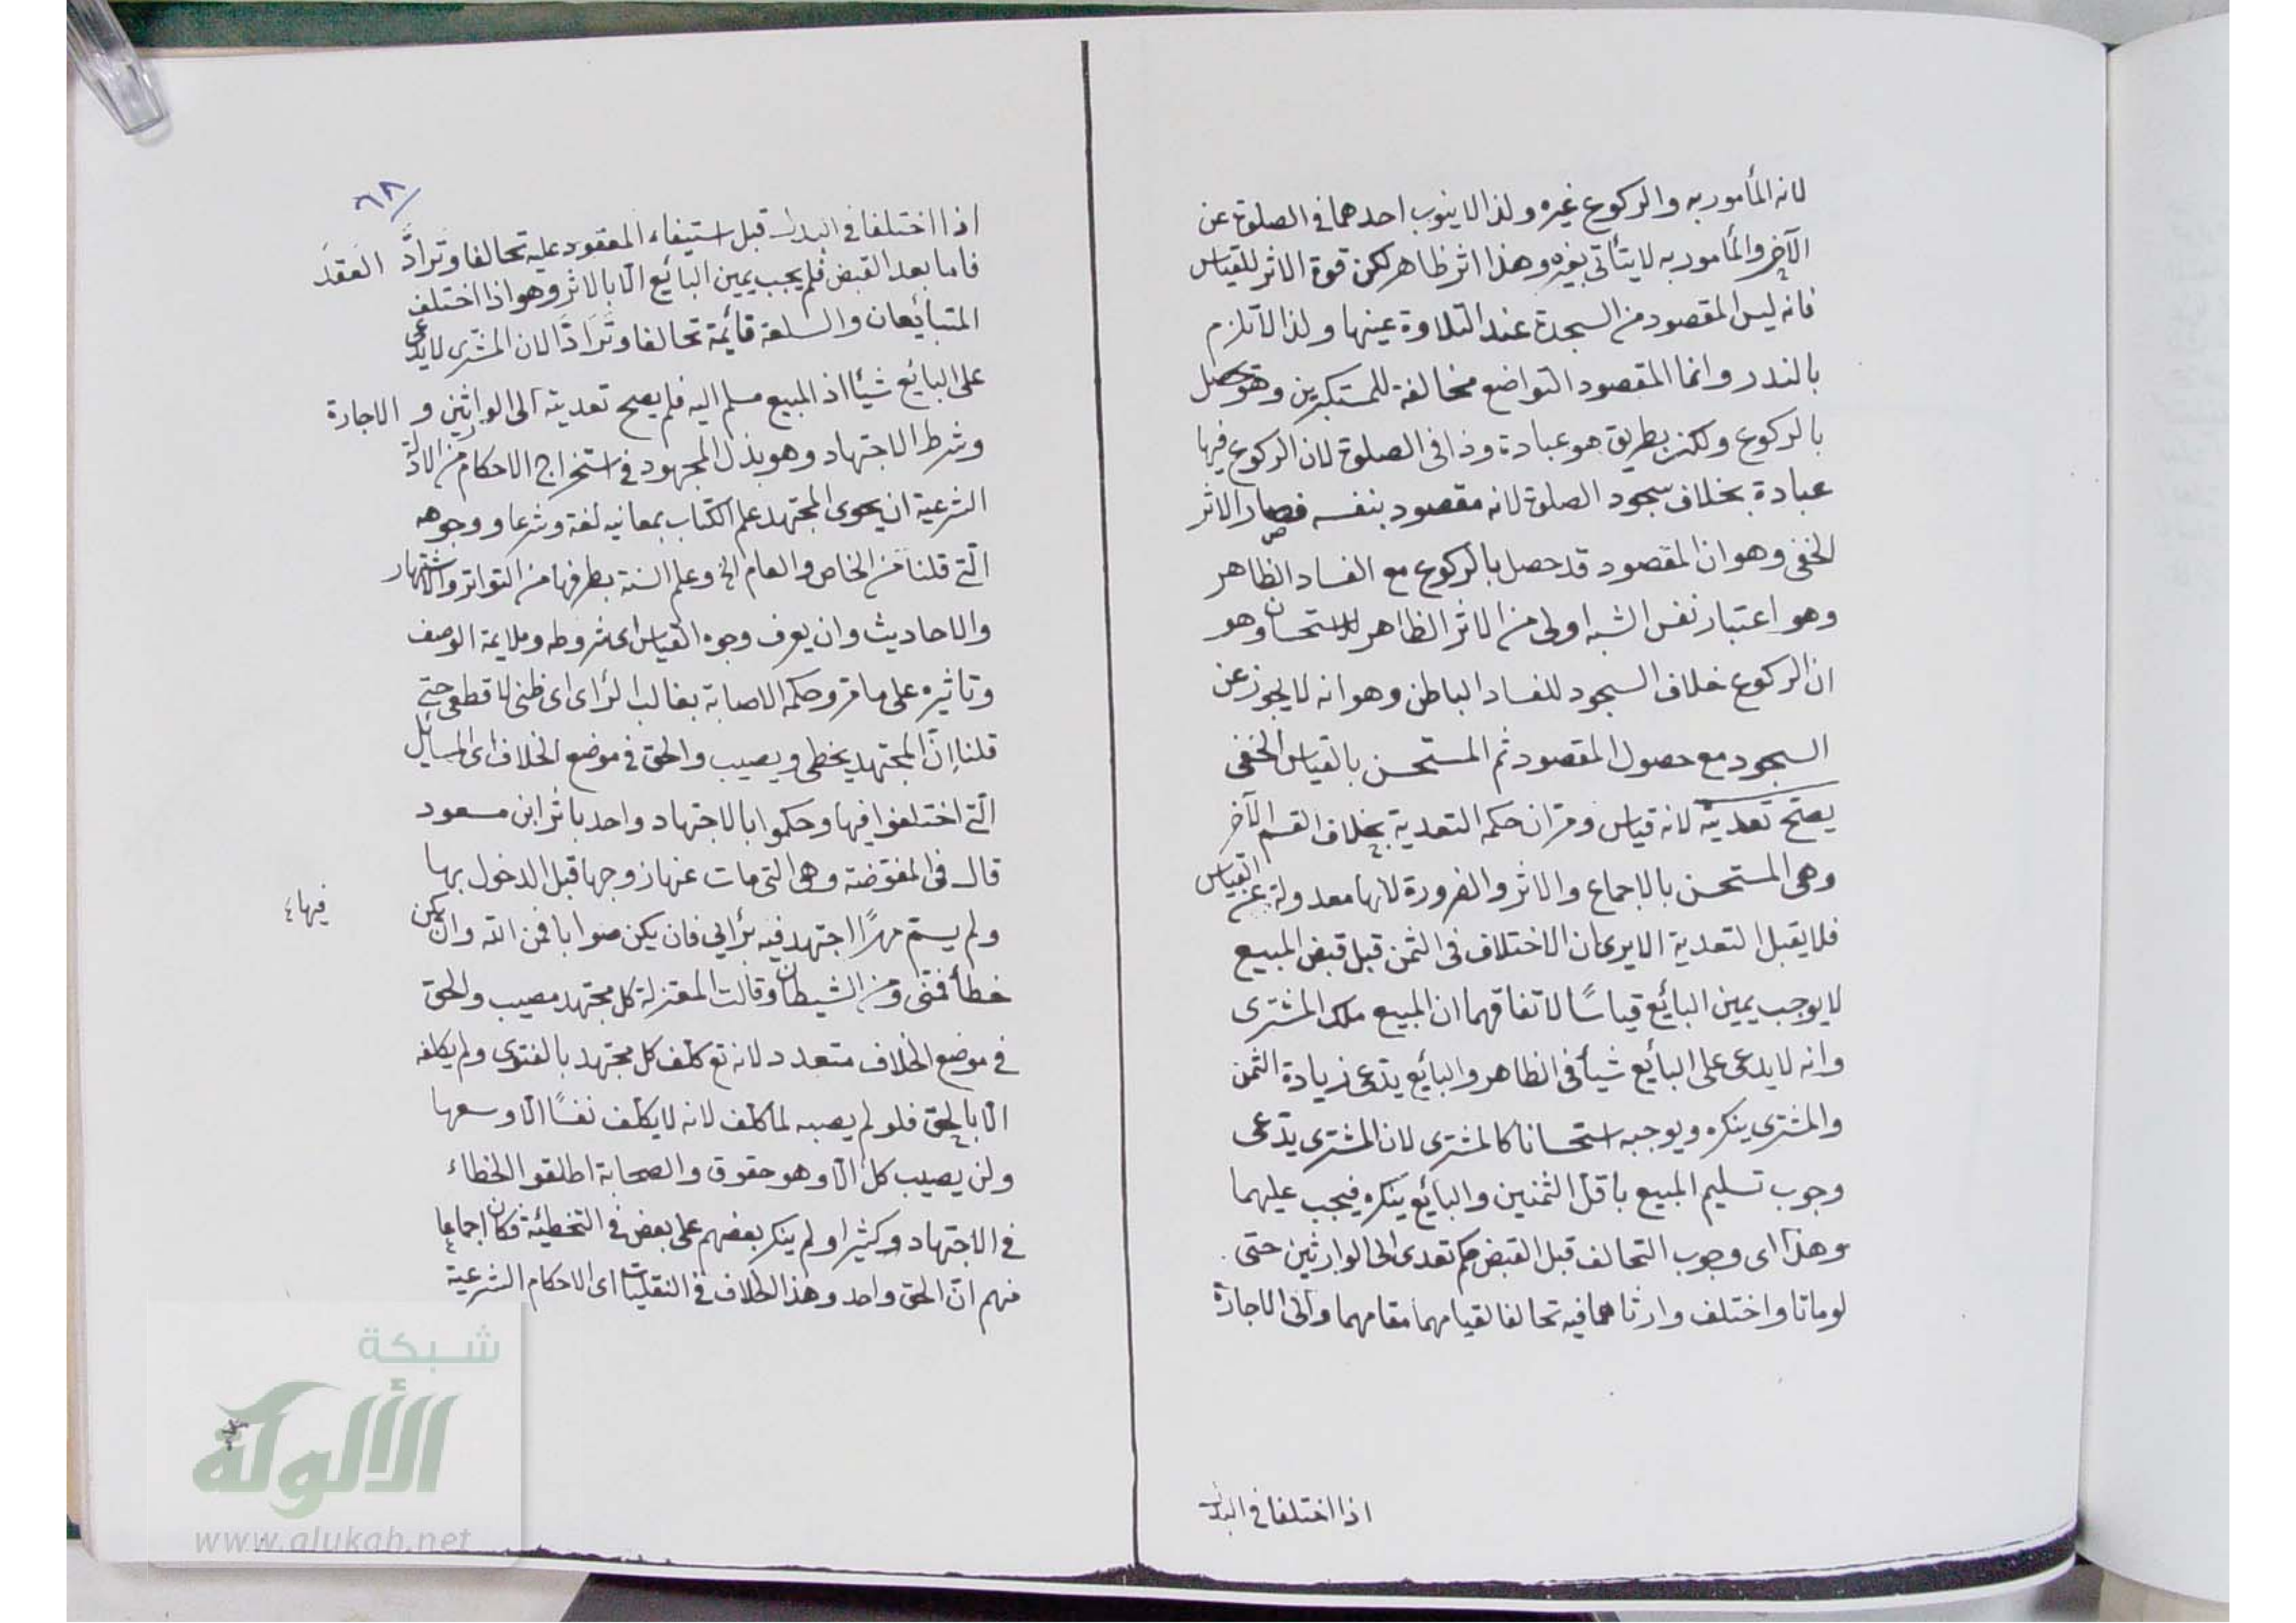 لانه المأمور به والركوع غيره ولذا لا ينوب احدهما في الصلوة عن
الآخر والمأمور به لا يتأتى بغيره وهذا اثر ظاهر لكن قوة الاثر للقياس
فانه ليس المقصود من السجدة عند التلاوة عينها ولذا لا تلزم
بالنذر وانما المقصود التواضع مخالفة للمستكبرين وهو حصل
بالركوع ولكن بطريق هو عبادة وذا في الصلوة لان الركوع فيها
عبادة بخلاف سجود الصلوة لانه مقصود بنفسه فصار الاثر
الخفي وهو ان المقصود قد حصل بالركوع مع الفساد الظاهر
وهو اعتبار نفس الشبه اولى من الاثر الظاهر للاستحسان وهو
ان الركوع خلاف السجود للفساد الباطن وهو انه لا يجوز عن
السجود مع حصول المقصود ثم المستحسن بالقياس الخفي
يصح تعديته لانه قياس ومر ان حكمه التعدية بخلاف القسم الآخر
وهي المستحسن بالاجماع والاثر والضرورة لانها معدولة عن القياس
فلا يقبل التعدية الا يرى ان الاختلاف في الثمن قبل قبض المبيع
لا يوجب يمين البائع قياسًا لاتفاقهما ان المبيع ملك المشترى
وانه لا يدعى على البائع شيأ في الظاهر والبائع يدعى زيادة الثمن
والمشترى ينكره ويوجبه استحسانا كالمشترى لان المشترى يدعى
وجوب تسليم المبيع باقل الثمنين والبائع ينكره فيجب عليهما
وهذا اى وجوب التحالف قبل القبض حكم تعدى الى الوارثين حتى
لو ماتا واختلف وارثاهما فيه تحالفا لقيامهما مقامهما والى الاجارة
اذا اختلفا في البدل
٦٨
اذا اختلفا في البدل قبل استيفاء المعقود عليه تحالفا وترادّ العقد
فاما بعد القبض فلم يجب يمين البائع الا بالاثر وهو اذا اختلف
المتبائعان والسلعة قائمة تحالفا وترادّا لان المشترى لا يدعى
على البائع شيأ اذ المبيع مسلم اليه فلم يصح تعديته الى الوارثين و الاجارة
وشرط الاجتهاد وهو بذل المجهود في استخراج الاحكام من الادلة
الشرعية ان يحوى المجتهد علم الكتاب بمعانيه لغة وشرعا ووجوهه
التي قلنا من الخاص والعام الخ وعلم السنة بطرقها من التواتر والاشتهار
والاحاديث وان يعرف وجوه القياس اى شروطه وملايمة الوصف
وتأثيره على ما مر وحكمه الاصابة بغالب الرأى اى ظنى لا قطعى حتى
قلنا إنّ المجتهد يخطى ويصيب والحق في موضع الخلاف اى المسايل
التي اختلفوا فيها وحكموا بالاجتهاد واحد باثر ابن مسعود
قال في المفوّضة وهي التي مات عنها زوجها قبل الدخول بها
ولم يسم مهرًا اجتهد فيه برأئي فان يكن صوابا فمن الله وان يكن
فيها
خطأ فمنى ومن الشيطان وقالت المعتزلة كل مجتهد مصيب والحق
في موضع الخلاف متعدد لانه تع كلف كل مجتهد بالفتوى ولم يكلفه
الا بالحق فلو لم يصبه لما كلف لانه لا يكلف نفسًا الا وسعها
ولن يصيب كل الا وهو حقوق والصحابة اطلقوا الخطاء
في الاجتهاد كثيرا ولم ينكر بعضهم على بعض في التخطئة فكان اجماعا
منهم انّ الحق واحد وهذا الخلاف في النقليات اى الاحكام الشرعية
شبكة
الألوكة
www.alukah.net